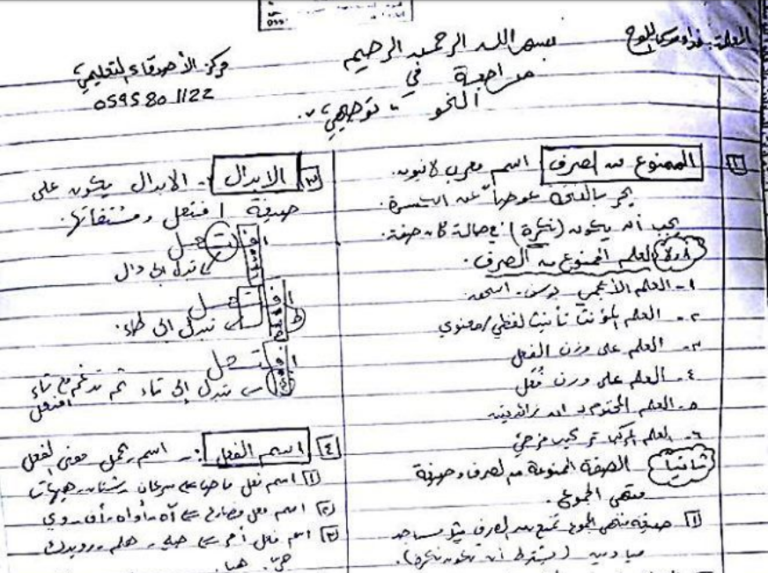 بسم الله الرحمن الرحيم
مراجعة في
النحو - توجيهي
مركز الأصدقاء التعليمي
0595801122
١ الممنوع من الصرف اسم معرب لا ينون.
يجر بالفتحة عوضاً عن الكسرة.
يجب أن يكون (نكرة) في حالة كان صفة.
أولاً العلم الممنوع من الصرف.
١- العلم الأعجمي
٢- العلم المؤنث تأنيث لفظي/معنوي
٣- العلم على وزن الفعل
٤- العلم على وزن فُعَل
٥- العلم المختوم بـ ان زائدتين
٦- العلم المركب تركيب مزجي
ثانياً الصفة الممنوعة من الصرف وصيغة
منتهى الجموع.
١ صيغة منتهى الجموع تمنع من الصرف مثل مساجد
ميادين (يشترط أن تكون نكرة).
٣ الإبدال - الإبدال يكون على
صيغة افتعل ومشتقاتها.
تبدل إلى دال
تبدل إلى طاء.
تبدل إلى تاء ثم تدغم مع تاء
افتعل
٤ اسم الفعل :- اسم يحمل معنى الفعل
١ اسم فعل ماضٍ سرعان - شتان - هيهات
٢ اسم فعل مضارع آه - أواه - أف - وي
٣ اسم فعل أمر صه - هلم - رويدك
حيّ. هيا.